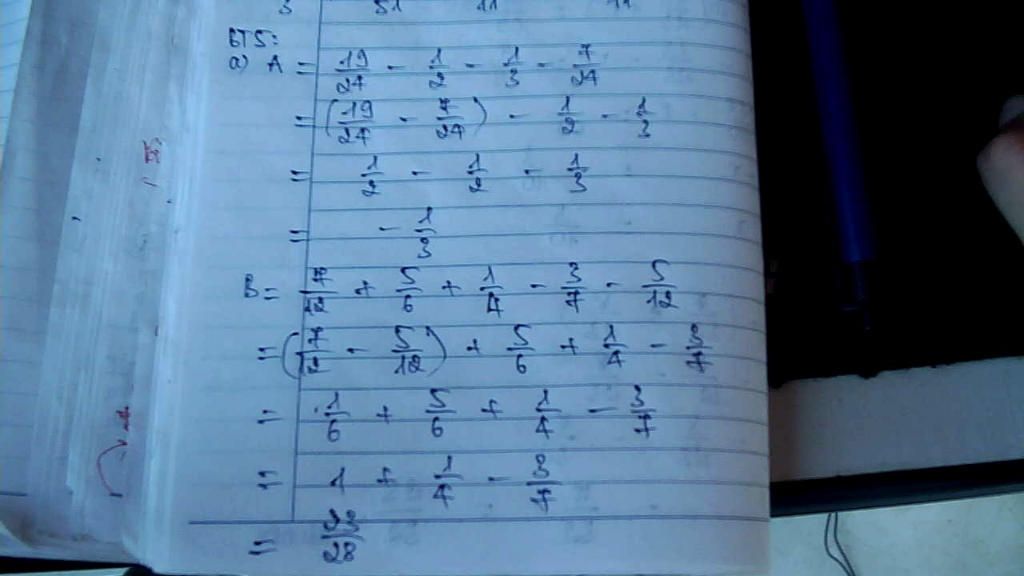 3 51 11 11
BT5:
a) A = 19/24 - 1/2 - 1/3 - 7/24
= (19/24 - 7/24) - 1/2 - 1/3
= 1/2 - 1/2 - 1/3
= - 1/3
B = 7/12 + 5/6 + 1/4 - 3/7 - 5/12
= (7/12 - 5/12) + 5/6 + 1/4 - 3/7
= 1/6 + 5/6 + 1/4 - 3/7
= 1 + 1/4 - 3/7
= 23/28